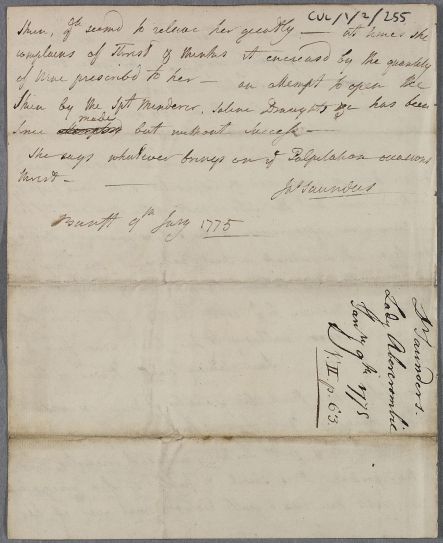 CUL/1/2/255
Skin, & seemd to relieve her greatly — at times she
complains of Thirst & thinks it encreased by the quantity
of Wine prescribd to her — an attempt to open the
Skin by the Spt Menderer. Saline Draughts &c has been
since made but without success —
She says whatever brings on ye Palpitation occasions
thirst —
Jas Saunders
Banff 9th Jany 1775
Dr Saunders.
Lady Abercrombie
Jany 9th 1775
V. II p. 63.